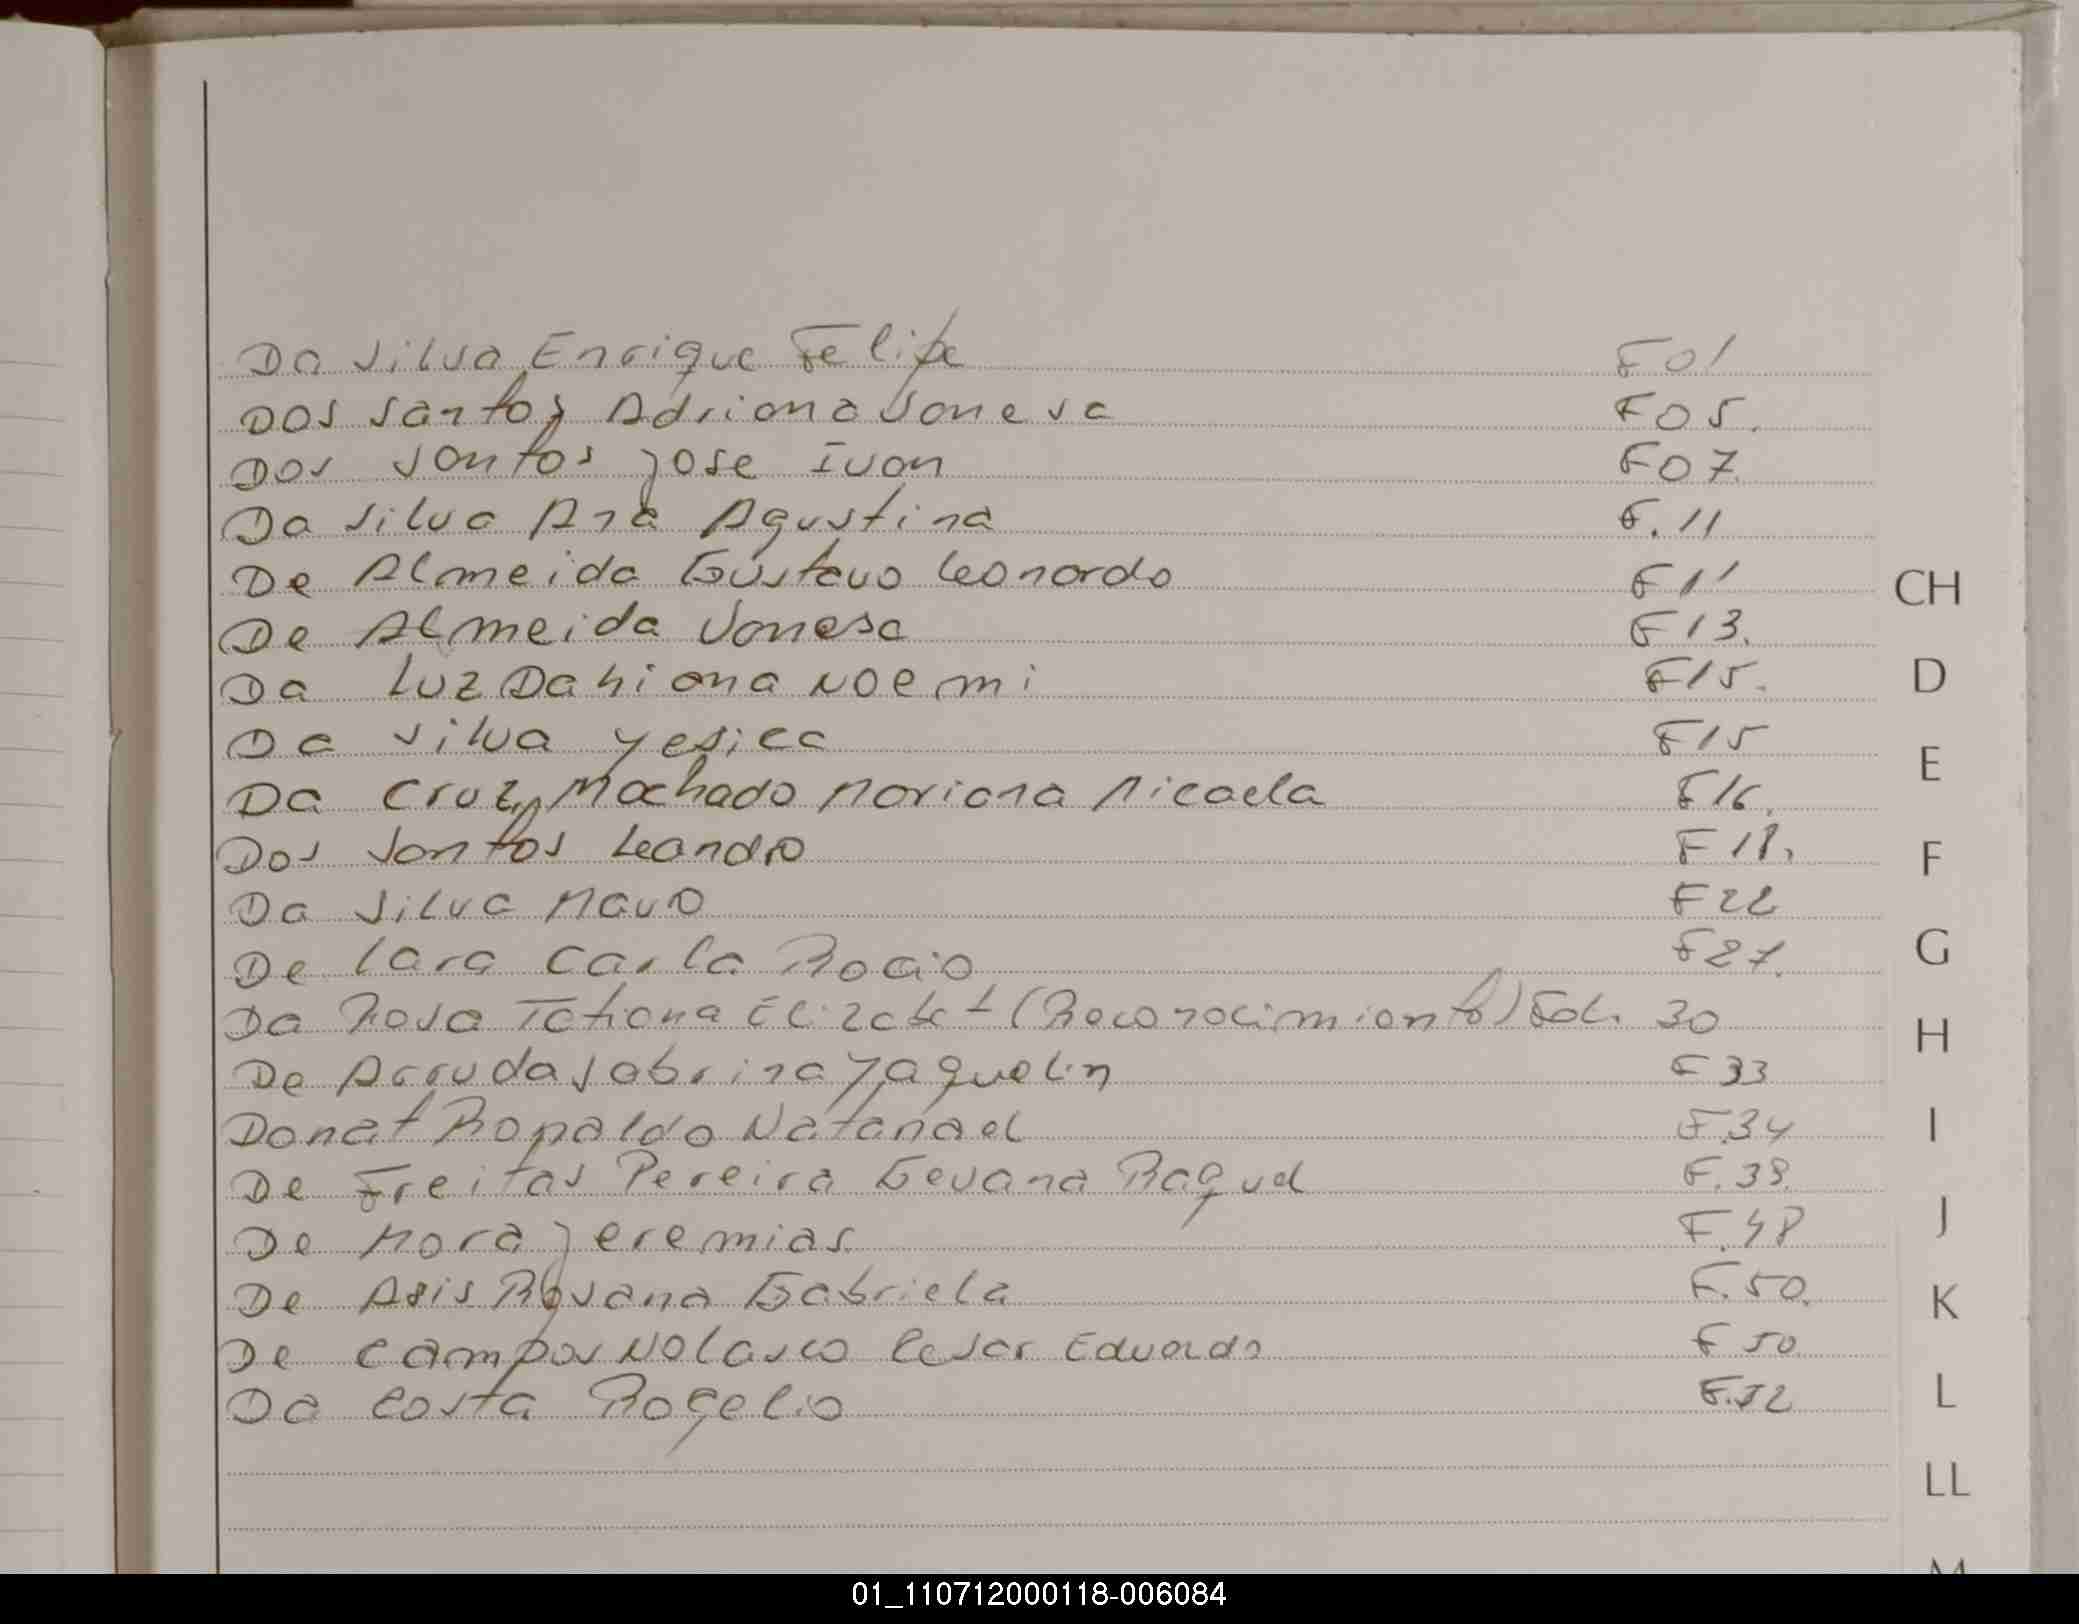 Da Silva Enrique Felipe F 01
Dos Santos Adriana Vanesa F 05.
Dos Santos Jose Ivan F 07.
Da Silva Ana Agustina F. 11
De Almeida Gustavo Leonardo F 11
De Almeida Vanesa F 13.
Da Luz Dahiana Noemi F 15.
Da Silva Yesica F 15
Da Cruz Machado Mariana Micaela F 16.
Dos Santos Leandro F 18.
Da Silva Mauro F 22
De Lara Carla Rocio F 27.
Da Rosa Tatiana Elizabet (Reconocimiento) Fol. 30
De Arruda Sabrina Yaquelin F 33
Donat Ronaldo Natanael F. 34
De Freitas Pereira Gevana Raquel F. 38.
De Mora Jeremias. F. 48
De Asis Rosana Gabriela F. 50.
De Campos Nolasco Cesar Eduardo F 50
Da Costa Rogelio F. 52
CH
D
E
F
G
H
I
J
K
L
LL
M
01_110712000118-006084